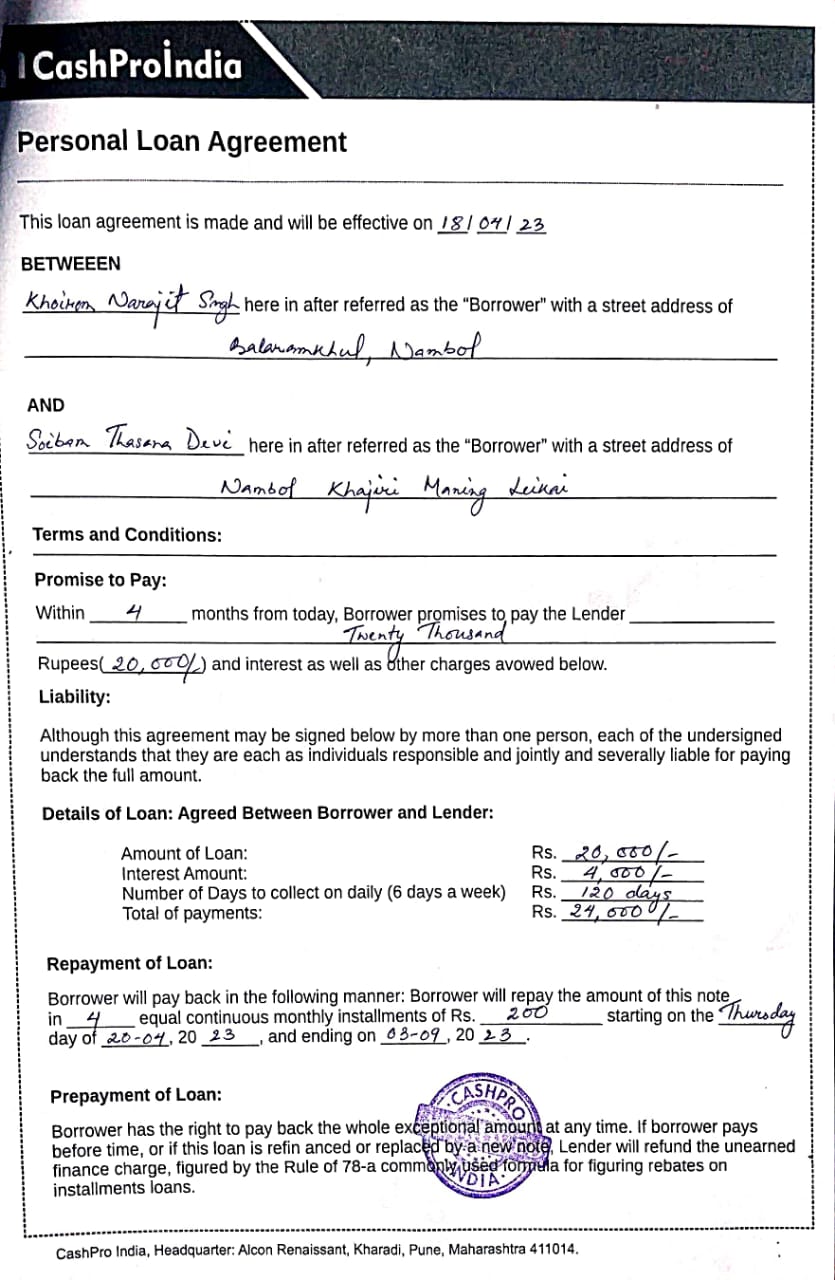 CashProIndia
Personal Loan Agreement
This loan agreement is made and will be effective on 18/ 04/ 23
BETWEEEN
Khoirom Narajit Singh here in after referred as the “Borrower” with a street address of
Balaramkhul, Nambol
AND
Soibam Thasana Devi here in after referred as the “Borrower” with a street address of
Nambol Khajiri Maning Leikai
Terms and Conditions:
Promise to Pay:
Within 4 months from today, Borrower promises to pay the Lender
Twenty Thousand
Rupees( 20,000/-) and interest as well as other charges avowed below.
Liability:
Although this agreement may be signed below by more than one person, each of the undersigned
understands that they are each as individuals responsible and jointly and severally liable for paying
back the full amount.
Details of Loan: Agreed Between Borrower and Lender:
Amount of Loan: Rs. 20,000/-
Interest Amount: Rs. 4,000/-
Number of Days to collect on daily (6 days a week) Rs. 120 days
Total of payments: Rs. 24,000/-
Repayment of Loan:
Borrower will pay back in the following manner: Borrower will repay the amount of this note
in 4 equal continuous monthly installments of Rs. 200 starting on the Thursday
day of 20-04, 20 23, and ending on 03-09, 20 23.
Prepayment of Loan:
Borrower has the right to pay back the whole exceptional amount at any time. If borrower pays
before time, or if this loan is refin anced or replaced by a new note, Lender will refund the unearned
finance charge, figured by the Rule of 78-a commonly used formula for figuring rebates on
installments loans.
CASHPRO
INDIA
CashPro India, Headquarter: Alcon Renaissant, Kharadi, Pune, Maharashtra 411014.